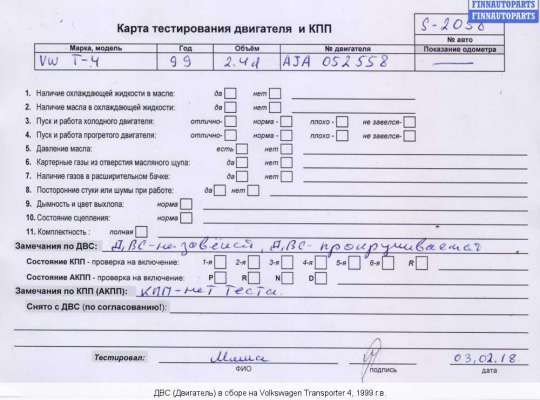 FINNAUTOPARTS
FINNAUTOPARTS
Карта тестирования двигателя и КПП
S-2058
№ авто
Марка, модель Год Объём № двигателя Показание одометра
VW T-4 99 2.4d AJA 052558 —
1. Наличие охлаждающей жидкости в масле: да нет
2. Наличие масла в охлаждающей жидкости: да нет
3. Пуск и работа холодного двигателя: отлично- норма - плохо - не завелся-
4. Пуск и работа прогретого двигателя: отлично- норма - плохо - не завелся-
5. Давление масла: есть нет
6. Картерные газы из отверстия масляного щупа: да нет
7. Наличие газов в расширительном бачке: да нет
8. Посторонние стуки или шумы при работе: да нет
9. Дымность и цвет выхлопа: норма
10. Состояние сцепления: норма
11. Комплектность : полная
Замечания по ДВС: ДВС-не завёлся, ДВС- прокручивается
Состояние КПП - проверка на включение: 1-я 2-я 3-я 4-я 5-я 6-я R
Состояние АКПП - проверка на включение: P R N D
Замечания по КПП (АКПП): КПП-нет теста.
Снято с ДВС (по согласованию!):
Тестировал: 03.02.18
ФИО подпись дата
ДВС (Двигатель) в сборе на Volkswagen Transporter 4, 1999 г.в.